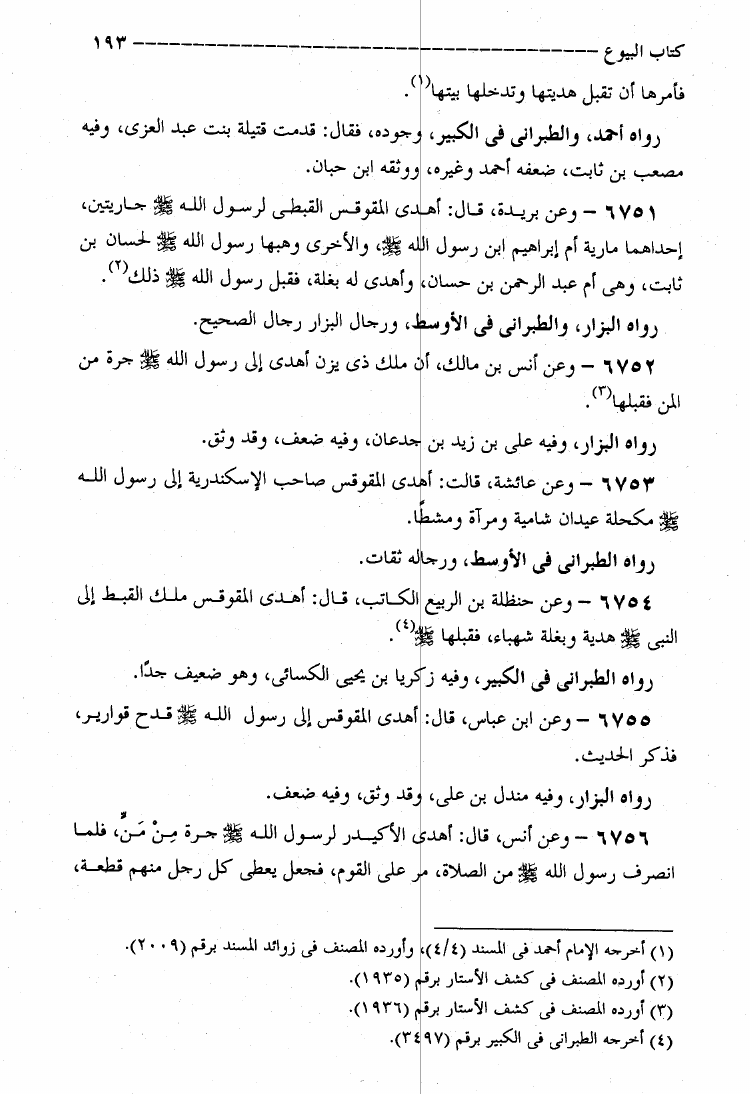 كتاب البيوع ------------------------------------------ ١٩٣
فأمرها أن تقبل هديتها وتدخلها بيتها(١).
رواه أحمد، والطبرانى فى الكبير، وجوده، فقال: قدمت قتيلة بنت عبد العزى، وفيه
مصعب بن ثابت، ضعفه أحمد وغيره، ووثقه ابن حبان.
٦٧٥١ – وعن بريدة، قال: أهدى المقوقس القبطى لرسول الله ﷺ جاريتين،
إحداهما مارية أم إبراهيم ابن رسول الله ﷺ، والأخرى وهبها رسول الله ﷺ لحسان بن
ثابت، وهى أم عبد الرحمن بن حسان، وأهدى له بغلة، فقبل رسول الله ﷺ ذلك(٢).
رواه البزار، والطبرانى فى الأوسط، ورجال البزار رجال الصحيح.
٦٧٥٢ – وعن أنس بن مالك، أن ملك ذى يزن أهدى إلى رسول الله ﷺ جرة من
المن فقبلها(٣).
رواه البزار، وفيه على بن زيد بن جدعان، وفيه ضعف، وقد وثق.
٦٧٥٣ – وعن عائشة، قالت: أهدى المقوقس صاحب الإسكندرية إلى رسول الله
ﷺ مكحلة عيدان شامية ومرآة ومشطًا.
رواه الطبرانى فى الأوسط، ورجاله ثقات.
٦٧٥٤ – وعن حنظلة بن الربيع الكاتب، قال: أهدى المقوقس ملك القبط إلى
النبى ﷺ هدية وبغلة شهباء، فقبلها ﷺ(٤).
رواه الطبرانى فى الكبير، وفيه زكريا بن يحيى الكسائى، وهو ضعيف جدًا.
٦٧٥٥ – وعن ابن عباس، قال: أهدى المقوقس إلى رسول الله ﷺ قدح قوارير،
فذكر الحديث.
رواه البزار، وفيه مندل بن على، وقد وثق، وفيه ضعف.
٦٧٥٦ – وعن أنس، قال: أهدى الأكيدر لرسول الله ﷺ جرة مِنْ مَنٍّ، فلما
انصرف رسول الله ﷺ من الصلاة، مر على القوم، فجعل يعطى كل رجل منهم قطعة،
(١) أخرجه الإمام أحمد فى المسند (٤/٤)، وأورده المصنف فى زوائد المسند برقم (٢٠٠٩).
(٢) أورده المصنف فى كشف الأستار برقم (١٩٣٥).
(٣) أورده المصنف فى كشف الأستار برقم (١٩٣٦).
(٤) أخرجه الطبرانى فى الكبير برقم (٣٤٩٧).